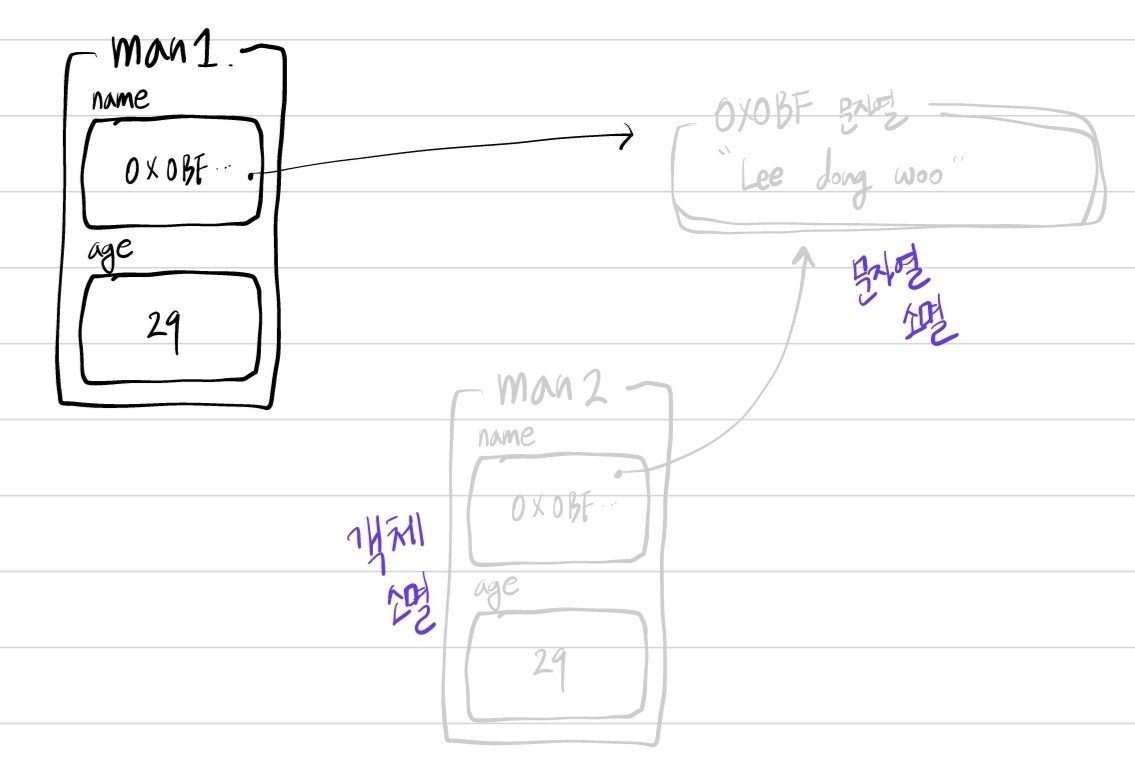 man1.
name
0x0BF...
age
29
0x0BF 문자열
"Lee dong woo"
문자열
소멸
man2
name
0x0BF...
age
29
객체
소멸